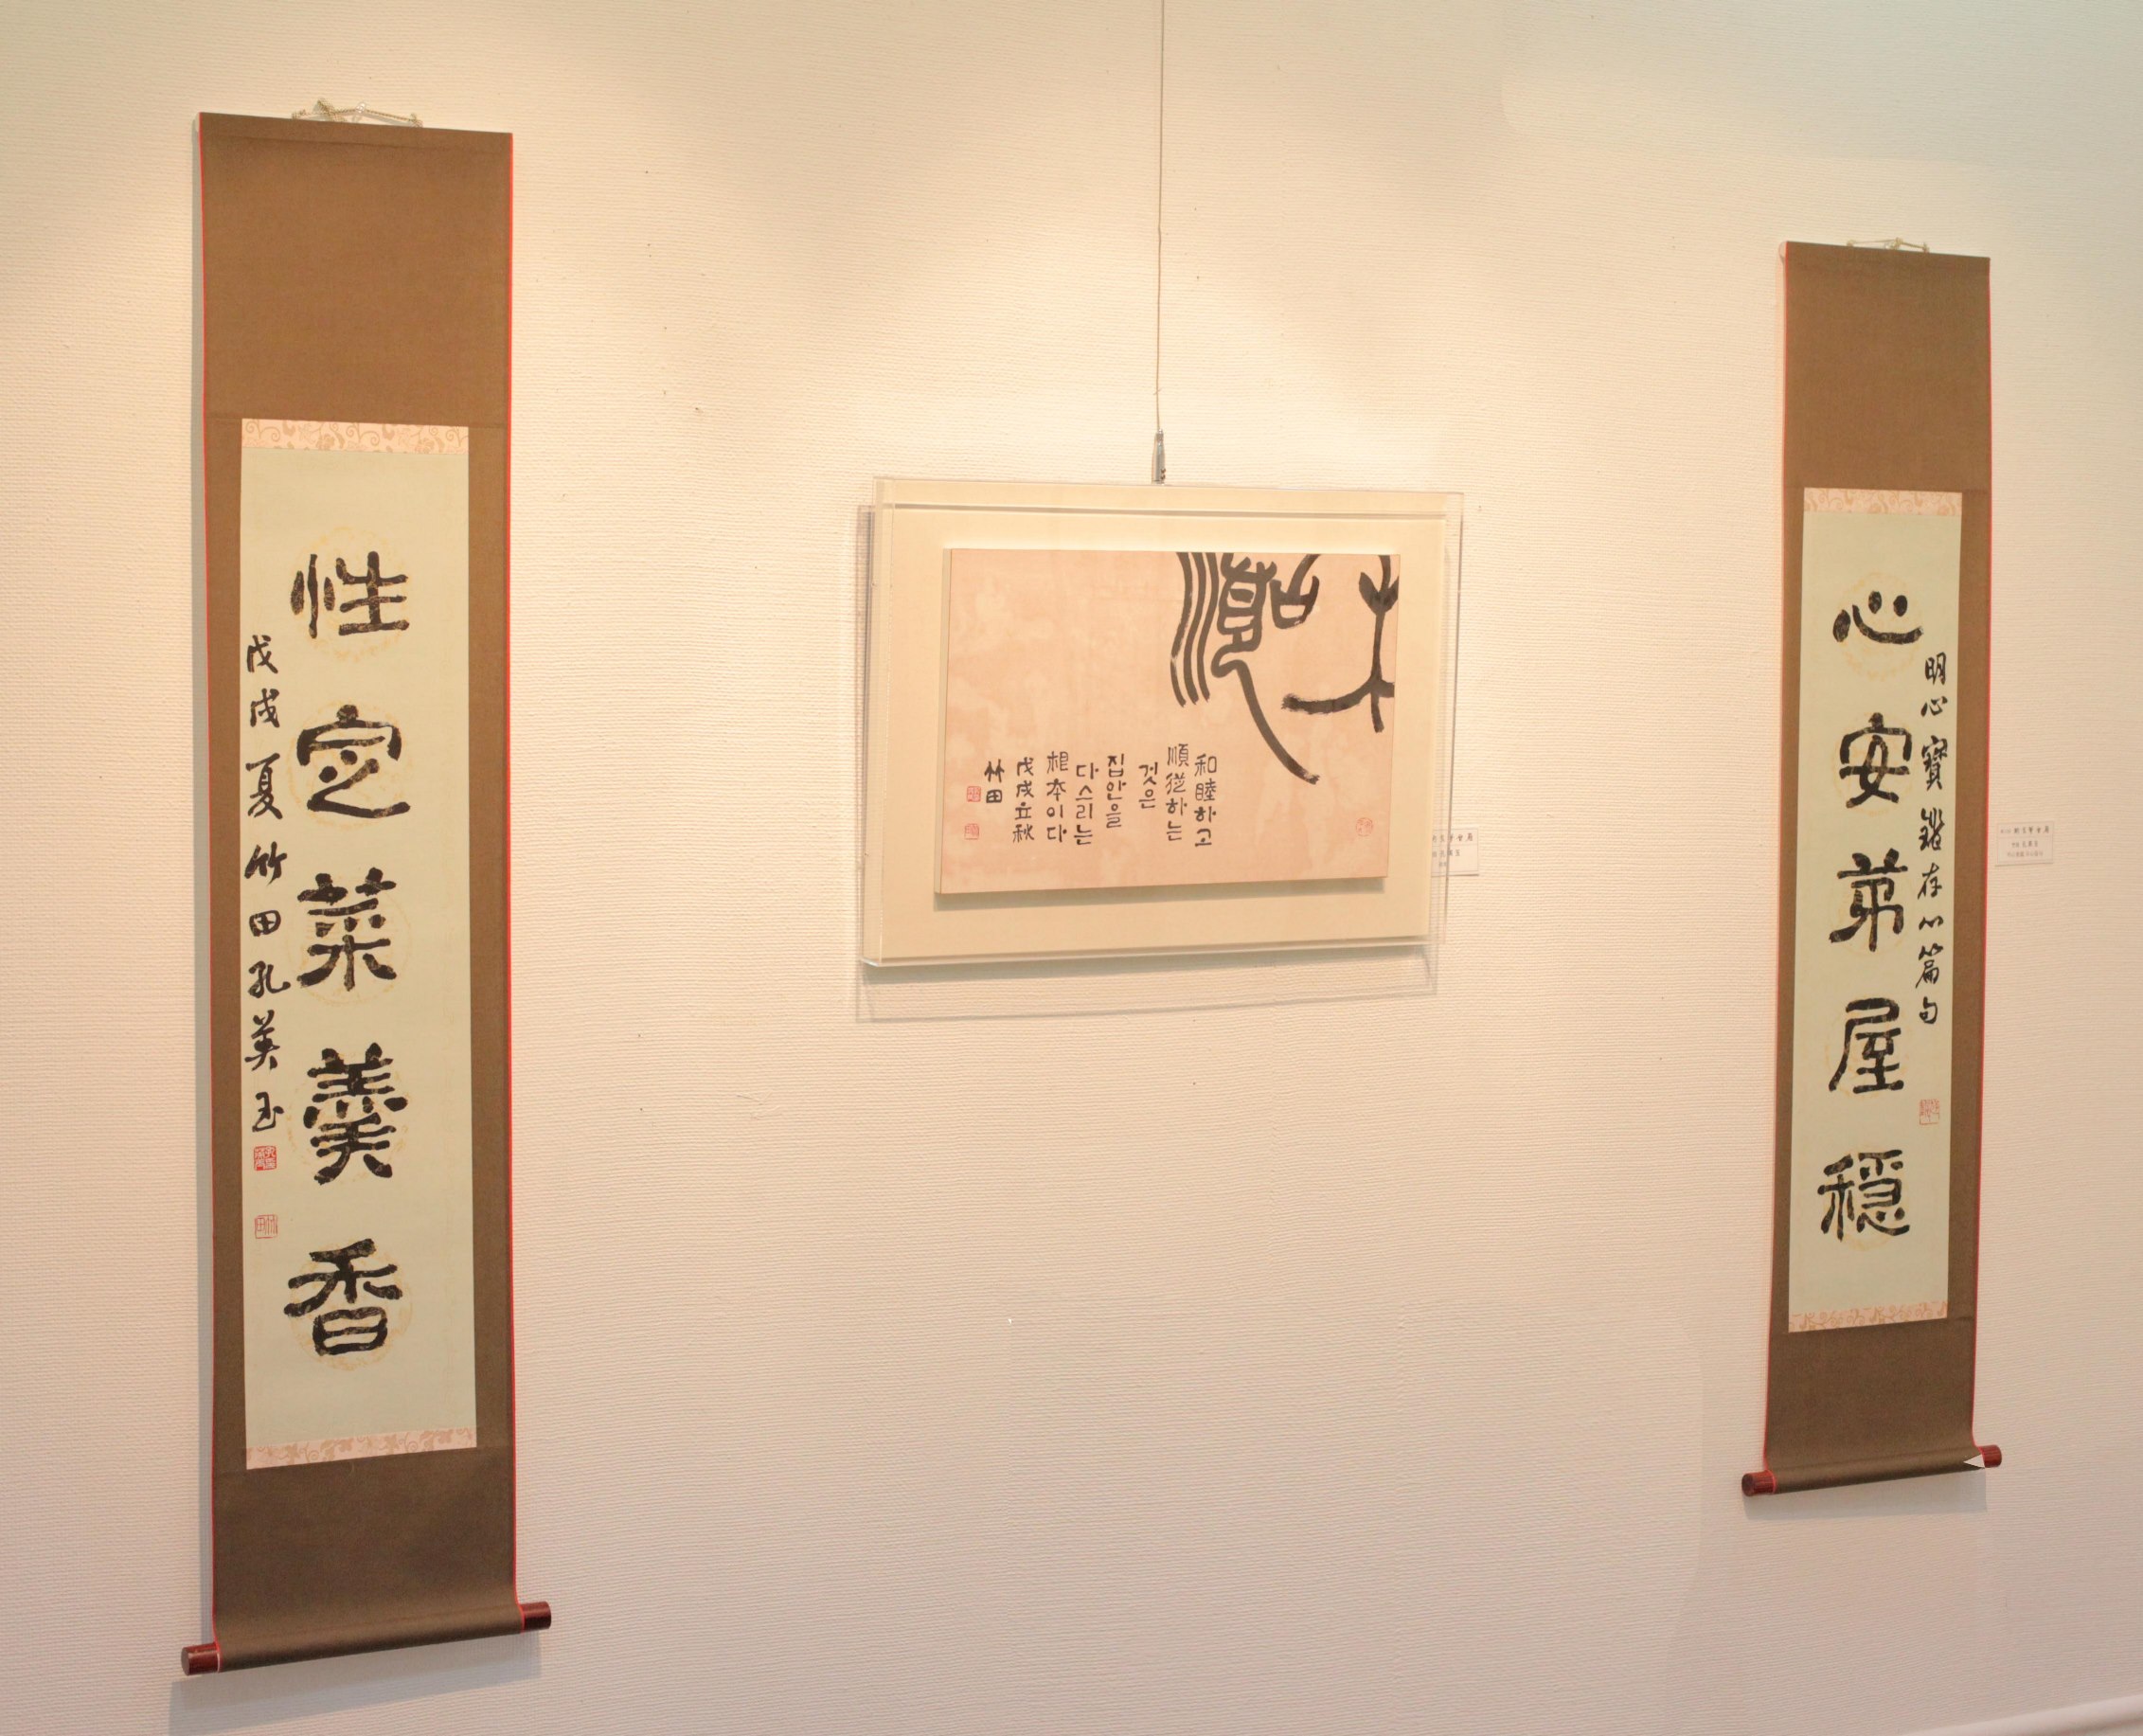 明心寶鑑存心篇句
心安茅屋穩
和順
和睦하고
順從하는
것은
집안을
다스리는
根本이다
戊戌立秋
竹田
性定菜羹香
戊戌夏竹田孔美玉